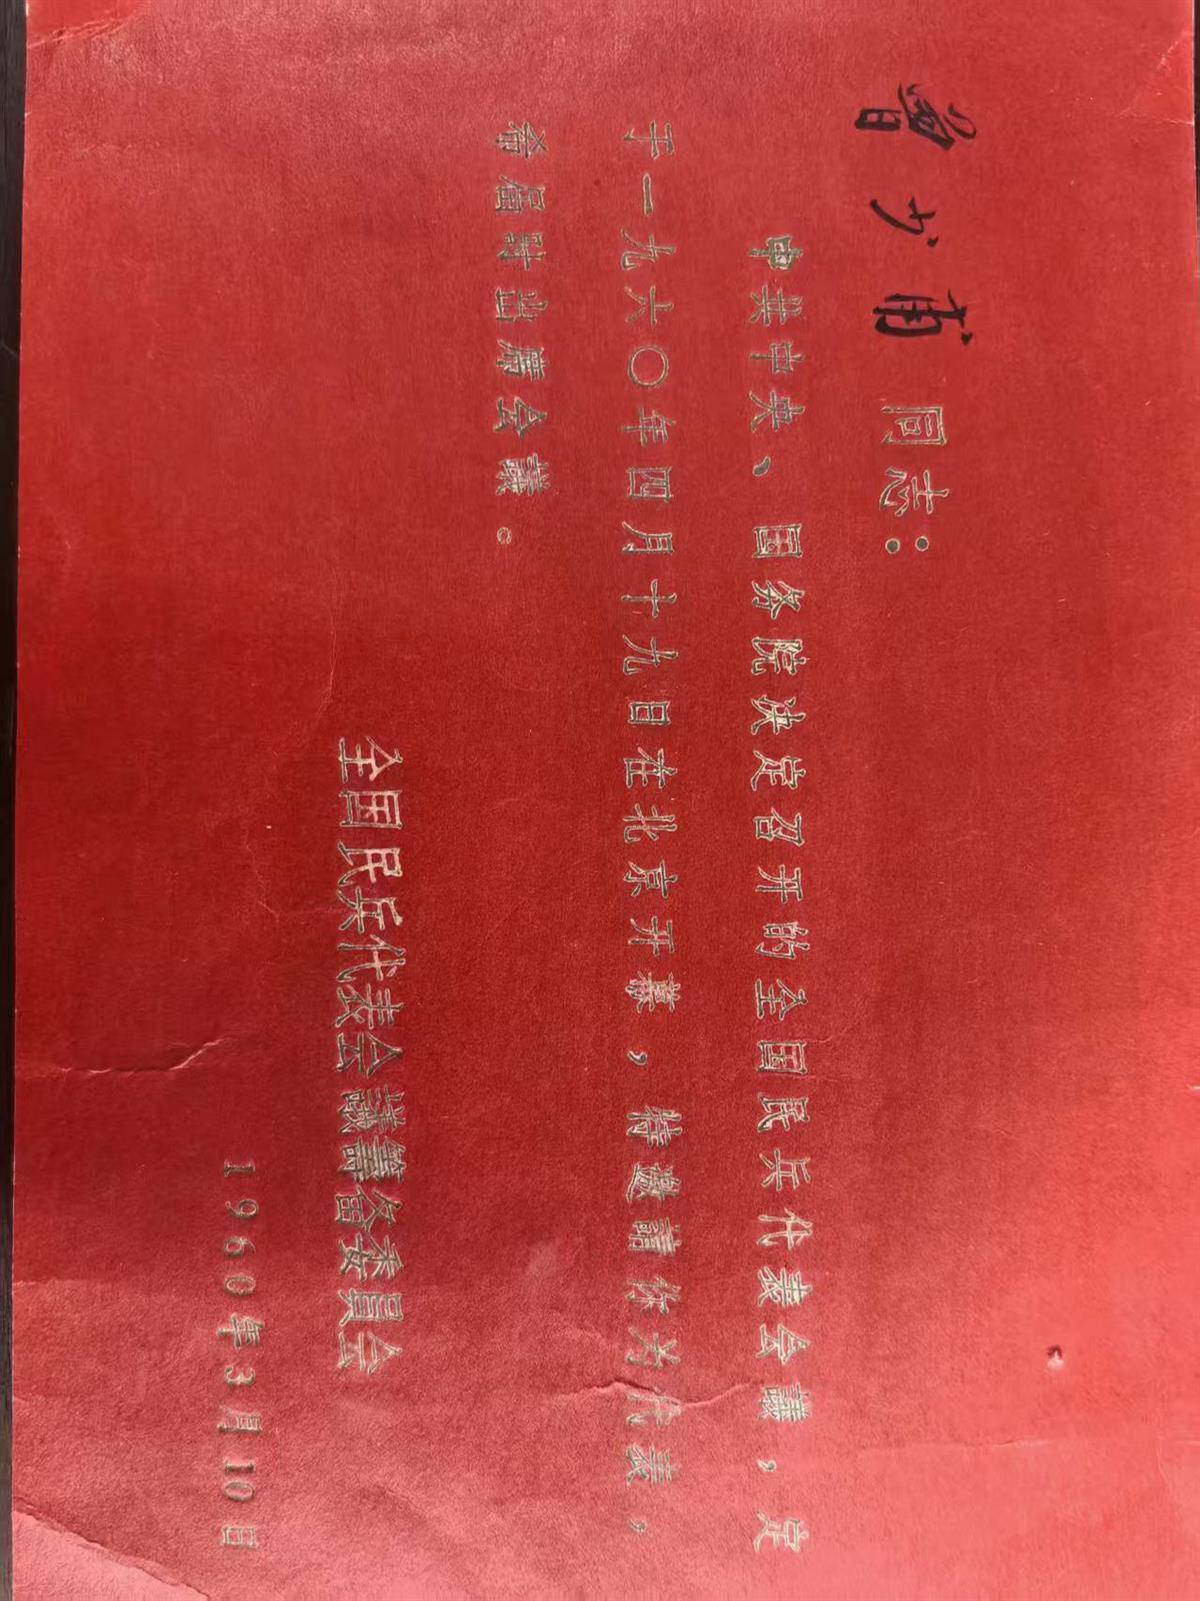 甫 同志：
中共中央、国务院决定召开的全国民兵代表会議，定
于一九六〇年四月十九日在北京开幕，特邀請你为代表，
希届时出席会議。
全国民兵代表会議籌备委員会
1960年3月10日